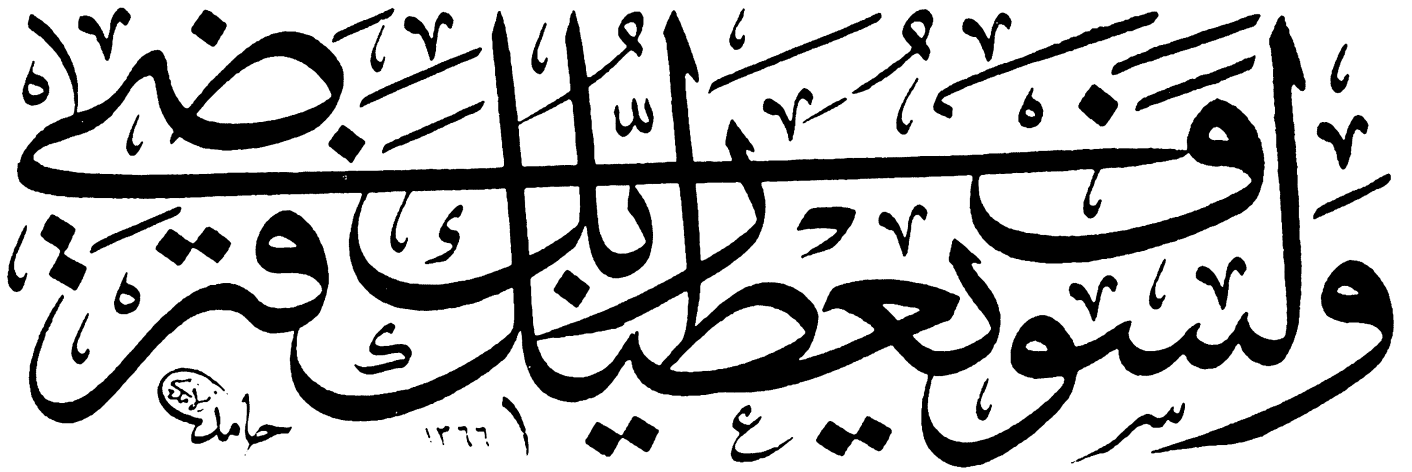 ولسوف يعطيك ربك فترضى
حامد
١٣٦٦